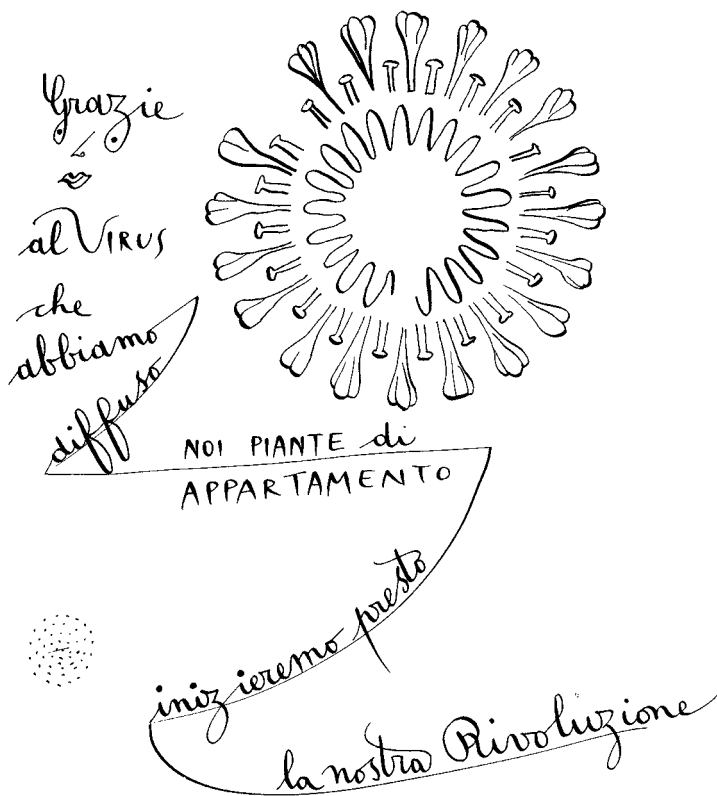 Grazie
al VIRUS
che
abbiamo
diffuso
NOI PIANTE di
APPARTAMENTO
inizieremo presto
la nostra Rivoluzione